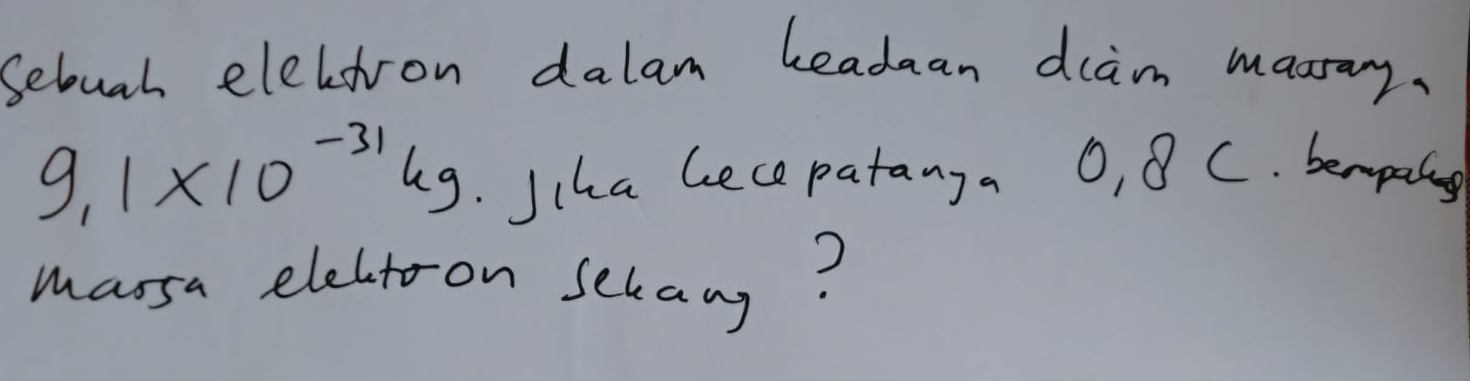 Sebuah elektron dalam keadaan diam massanya
9,1 x 10⁻³¹ kg. Jika kecepatanya 0,8 C. berapakag
massa elektron sekang ?